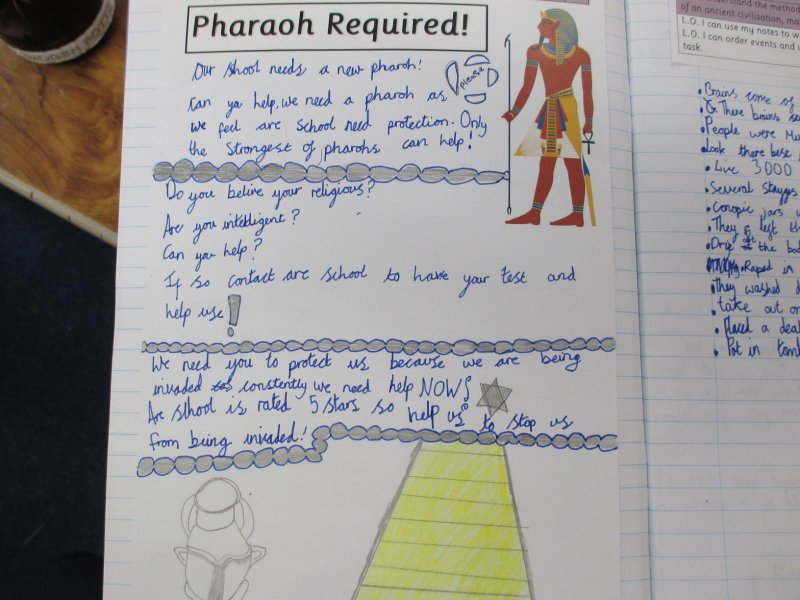 Pharaoh Required!
Our School needs a new pharoh!
please
Can ya help, we need a pharoh as
we feel are School need protection. Only
the Strongest of pharohs can help!
Do you belive your religious?
Are you intelligent?
Can you help?
If so contact are school to have your test and
help use!
We need you to protect us because we are being
invaded constently we need help NOW!
Are school is rated 5 stars so help us to stop us
from being invaded!
understand the method
of an ancient civilisation, ma
L.O. I can use my notes to w
L.O. I can order events and
task.
Brains come of
There brains
People were
Look there best
Live 3000
Several Stayges
Conopic jars
They left th
the bod
Raped in
They washed
take out or
Placed a dea
Put in tomb